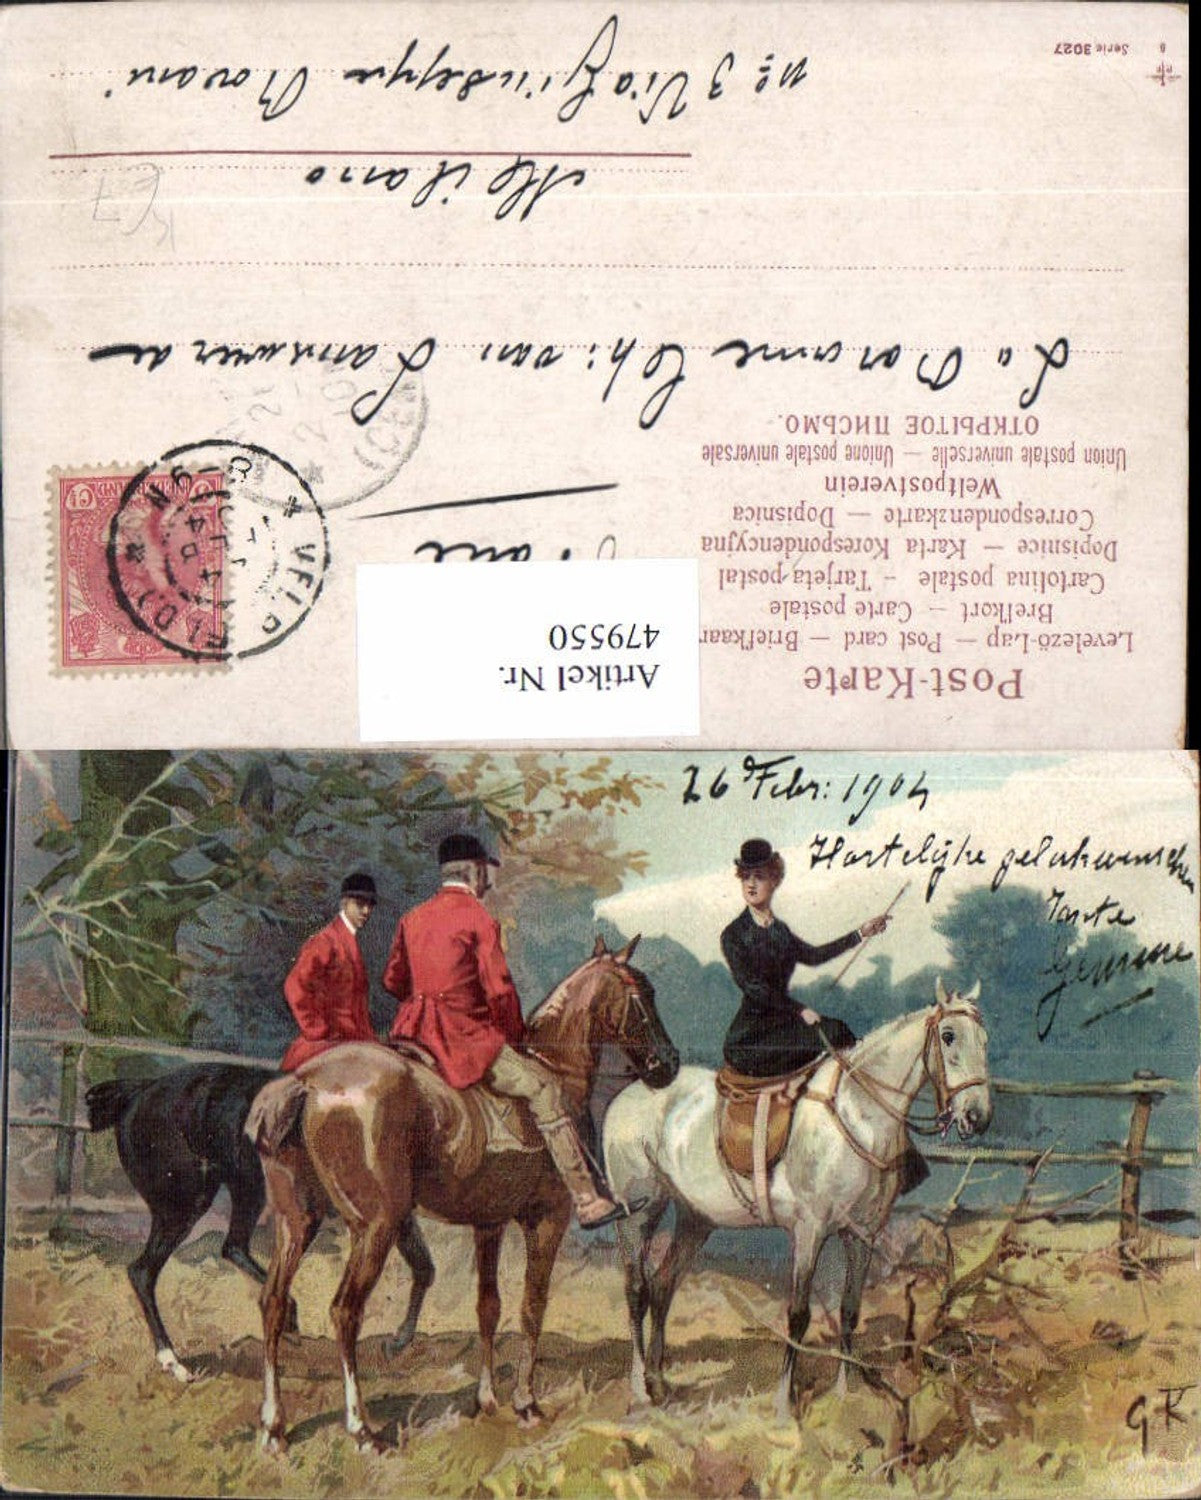 Post-Karte
Levelező-Lap — Post card — Briefkaar
Brefkort — Carte postale
Cartolina postale - Tarjeta postal
Dopisnice — Karta Korespondencyjna
Correspondenzkarte — Dopisnica
Weltpostverein
Union postale universelle — Unione postale universale
ОТКРЫТОЕ ПИСЬМО.
Artikel Nr.
479550
VELP
La Baronne
van
Milano
No 3 Via Giuseppe Rovani
Serie 3027
26 Febr: 1904
Hartelijke gelukwenschen
Tante
GK